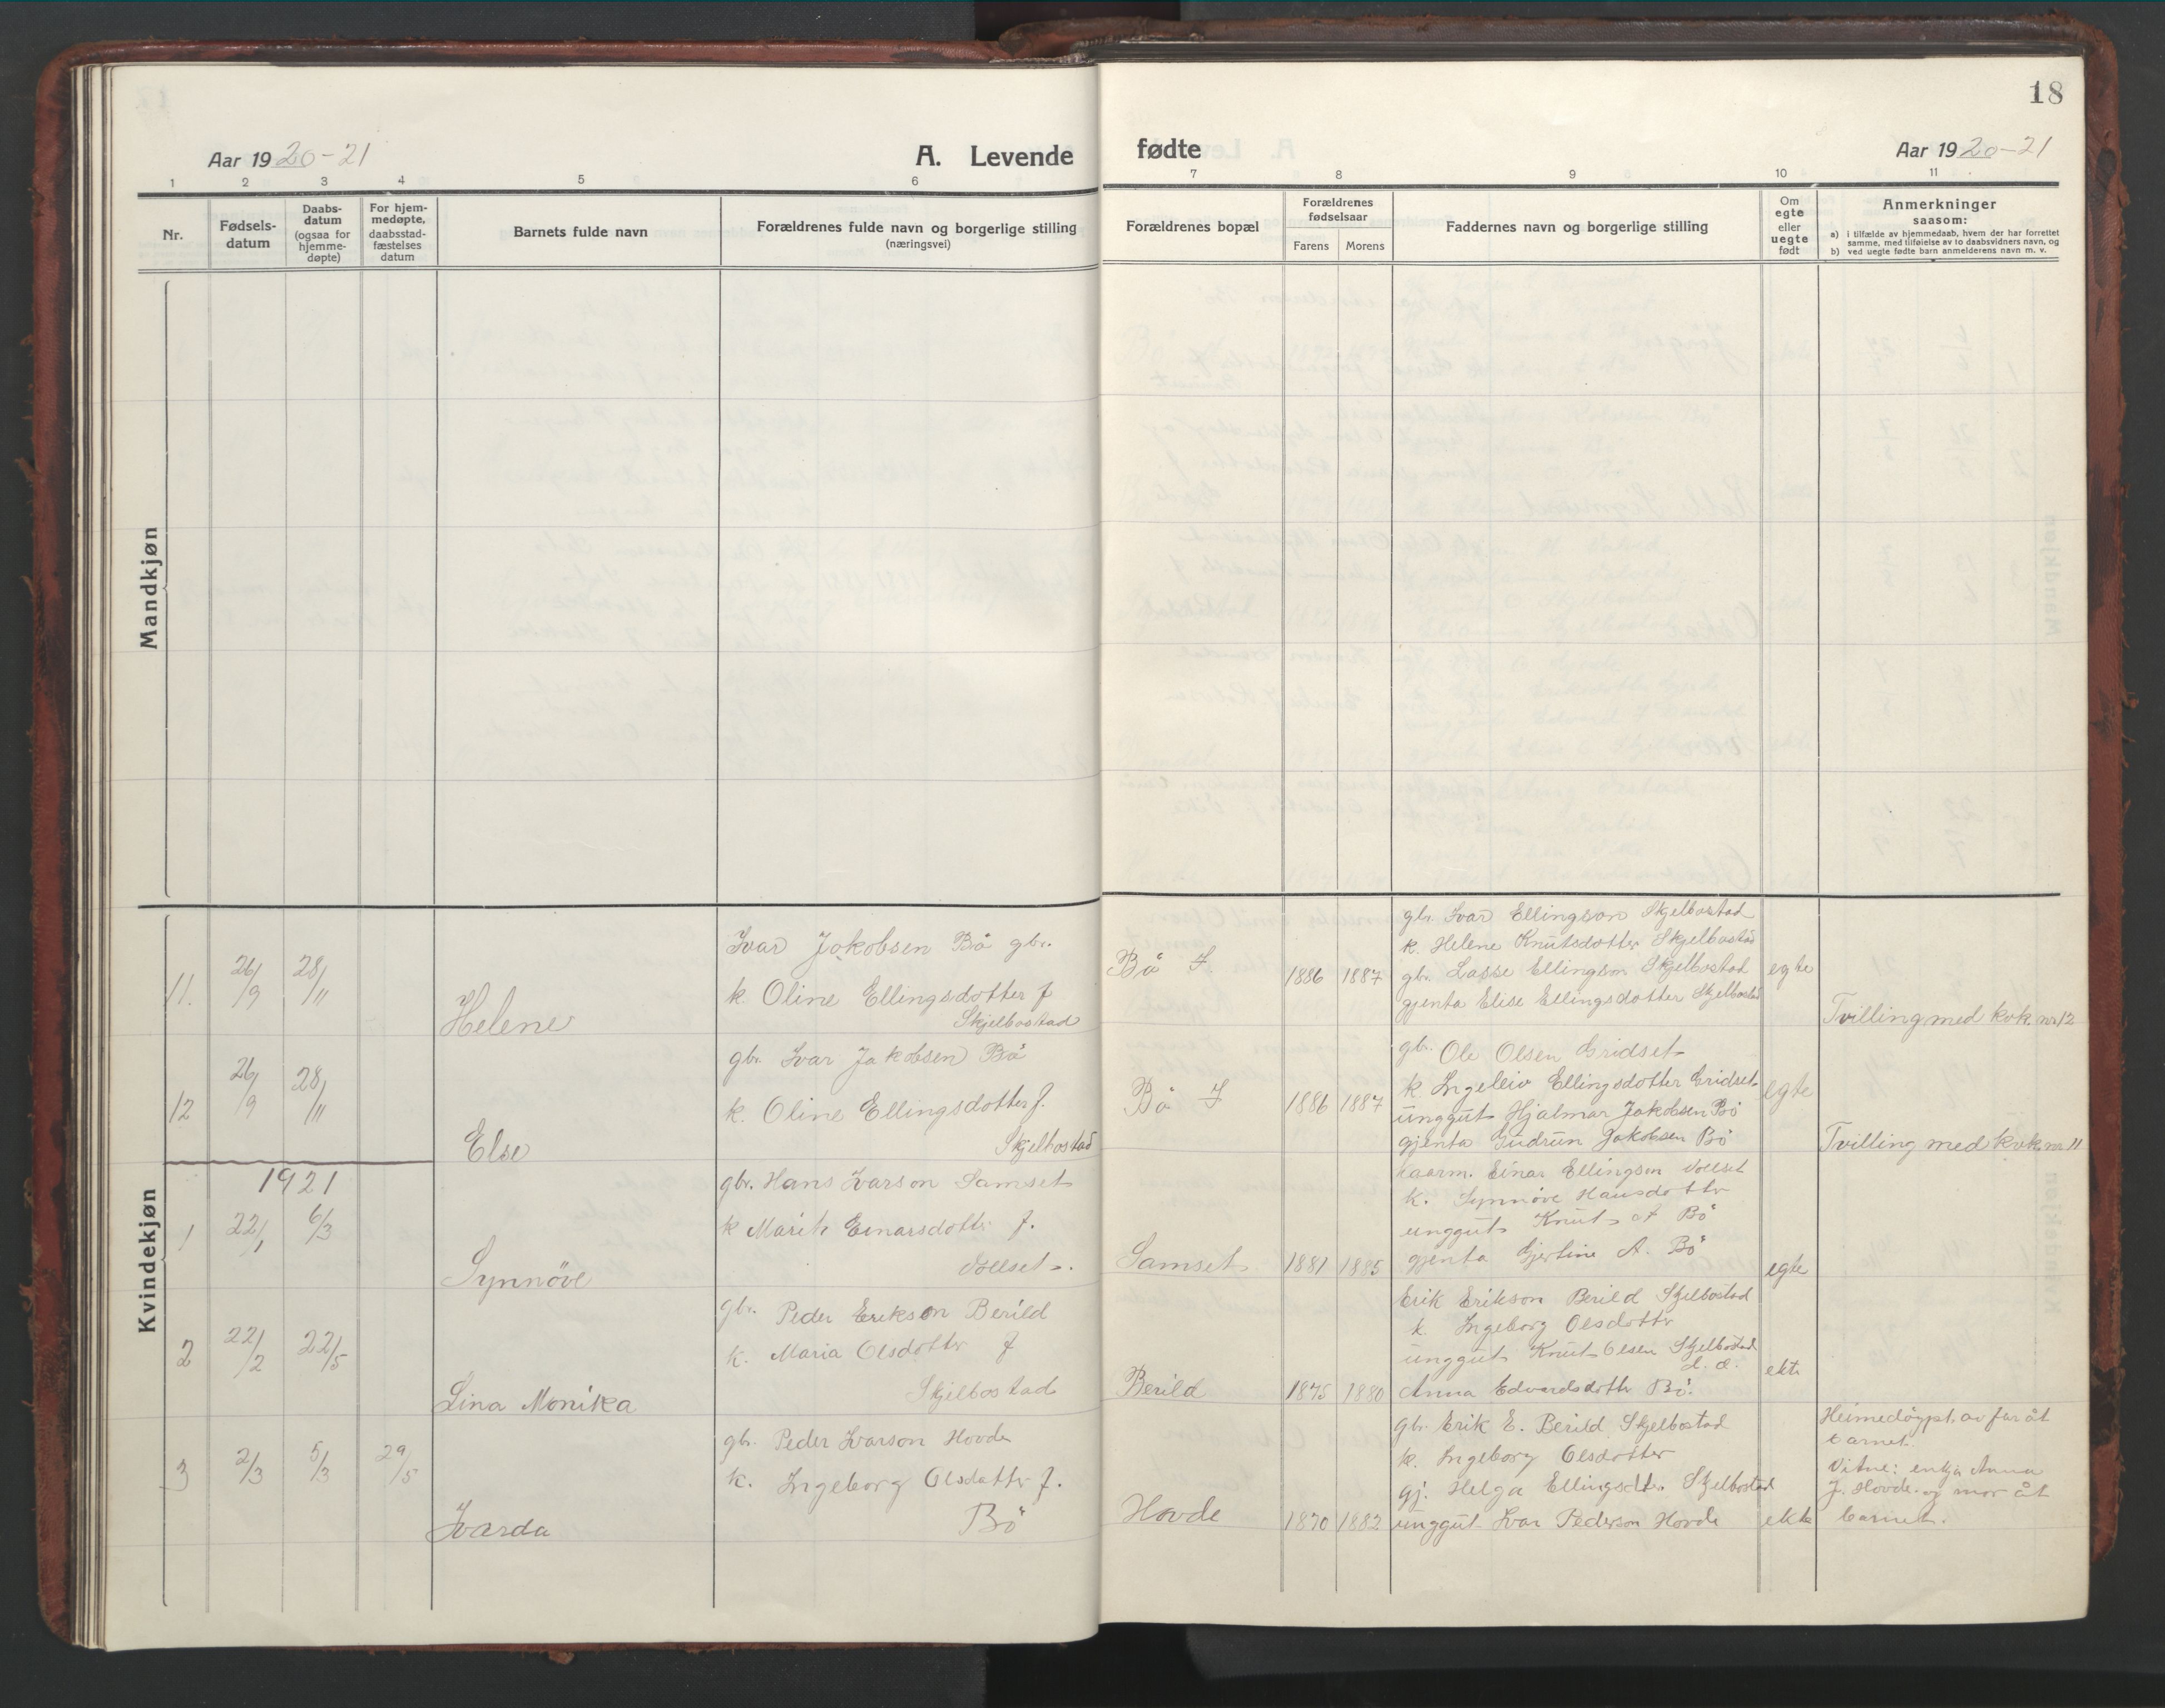 18
Aar 1920-21
A. Levende fødte
Aar 1920-21
1 2 3 4 5 6 7 8 9 10 11
Nr.
Fødsels-
datum
Daabs-
datum
(ogsaa for
hjemme-
døpte)
For hjem-
medøpte,
daabsstad-
fæstelses
datum
Barnets fulde navn
Forældrenes fulde navn og borgerlige stilling
(næringsvei)
Forældrenes bopæl
Forældrenes
fødselsaar
Farens Morens
Faddernes navn og borgerlige stilling
Om
egte
eller
uegte
født
Anmerkninger
saasom:
a) i tilfælde av hjemmedaab, hvem der har forrettet
samme, med tilføielse av to daabsvidners navn, og
b) ved uegte fødte barn anmelderens navn m. v.
Mandkjøn
Kvindekjøn
11. 26/9 28/11
Helene
Ivar Jakobsen Bö gbr.
k. Oline Ellingsdotter f
Skjelbostad
Bö I
1886 1887
gbr. Ivar Ellingson Skjelbostad
k. Helene Knutsdotter Skjelbostad
gbr. Lasse Ellingson Skjelbostad
gjenta Elise Ellingsdotter Skjelbostad
egte
Tvilling med kvk. nr 12
12 26/9 28/11
Else
gbr. Ivar Jakobsen Bö
k. Oline Ellingsdotter f.
Skjelbostad
Bö I
1886 1887
gbr. Ole Olsen Gridset
k. Ingeleiv Ellingsdotter Gridset
unggut Hjalmar Jakobsen Bö
gjenta Gudrun Jakobsen Bö
egte
Tvilling med kvk. nr 11
1921
1 22/1 6/3
Synnöve
gbr. Hans Ivarson Samset
k Marit Einarsdottr f.
Vollset.
Samset
1881 1885
kaarm. Einar Ellingson Vollset
k. Synnöve Hansdottr
unggut Knut A Bö
gjenta Gjertine A. Bö
egte
2 22/2 22/5
Lina Monika
gbr. Peder Erikson Berild
k. Maria Olsdottr f
Skjelbostad
Berild
1875 1880
Erik Erikson Berild Skjelbostad
k. Ingeborg Olsdottr
unggut Knut Olsen Skjelbostad
Anna Edvardsdottr Bö.
ekte
3 2/3 5/3 29/5
Ivarda
gbr. Peder Ivarson Hovde
k. Ingeborg Olsdottr f.
Bö
Hovde
1870 1882
gbr. Erik E. Berild Skjelbostad
k. Ingeborg Olsdotter
gj. Helga Ellingsdtr. Skjelbostad
unggut Ivar Pederson Hovde
ekte
Heimedöypt av far åt
barnet.
Vitne: enkja Anna
J. Hovde og mor åt
barnet.